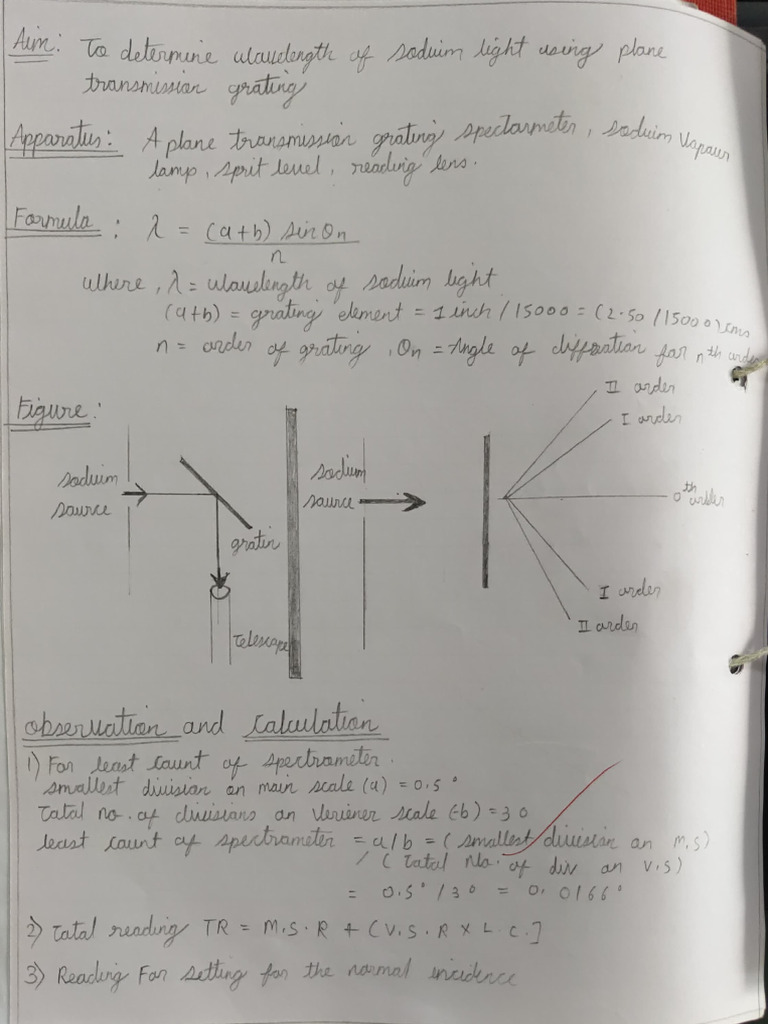 Aim: To determine wavelength of soduim light using plane
transmission grating
Apparatus: A plane transmission grating spectarmeter, soduim vapour
lamp, sprit level, reading lens.
Formula : λ = (a+b) sin θn
n
where, λ = wavelength of soduim light
(a+b) = grating element = 1 inch / 15000 = (2.50 / 15000) cms
n = order of grating, θn = Angle of diffration for nth order
Figure:
II order
I order
soduim
source
sodium
source
0th order
gratin
I order
Telescope
II order
observation and calculation
1) For least count of spectrameter.
smallest division on main scale (a) = 0.5°
Total no. of divisions on Veriener scale (b) = 30
least count of spectrameter = a/b = ( smallest division on M.S)
/ ( Total No. of div on V.S)
= 0.5° / 30 = 0.0166°
2) Total reading TR = M.S.R + (V.S.R x L.C.]
3) Reading For setting for the normal incidence